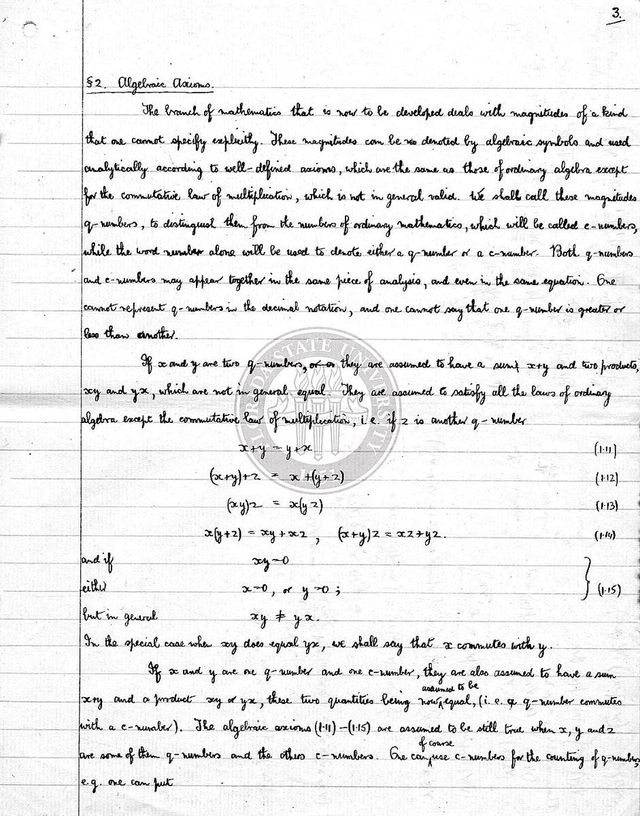 3.
§2. Algebraic Axioms.
The branch of mathematics that is now to be developed deals with magnitudes of a kind
that one cannot specify explicitly. These magnitudes can be denoted by algebraic symbols and used
analytically according to well-defined axioms, which are the same as those of ordinary algebra except
for the commutative law of multiplication, which is not in general valid. We shall call these magnitudes
q-numbers, to distinguish them from the numbers of ordinary mathematics, which will be called c-numbers,
while the word number alone will be used to denote either a q-number or a c-number. Both q-numbers
and c-numbers may appear together in the same piece of analysis, and even in the same equation. One
cannot represent q-numbers in the decimal notation, and one cannot say that one q-number is greater or
less than another.
If x and y are two q-numbers, they are assumed to have a sum x+y and two products,
xy and yx, which are not in general equal. They are assumed to satisfy all the laws of ordinary
algebra except the commutative law of multiplication, i.e. if z is another q-number
x+y = y+x (1·11)
(x+y)+z = x+(y+z) (1·12)
(xy)z = x(yz) (1·13)
x(y+z) = xy+xz, (x+y)z = xz+yz. (1·14)
and if xy=0
either x=0, or y=0; (1·15)
but in general xy ≠ yx.
In the special case when xy does equal yx, we shall say that x commutes with y.
If x and y are one q-number and one c-number, they are also assumed to have a sum
x+y and a product xy or yx, these two quantities being now assumed to be equal, (i.e. a q-number commutes
with a c-number). The algebraic axioms (1·11)-(1·15) are assumed to be still true when x, y and z
are some of them q-numbers and the others c-numbers. One can of course use c-numbers for the counting of q-numbers,
e.g. one can put
FLORIDA STATE UNIVERSITY